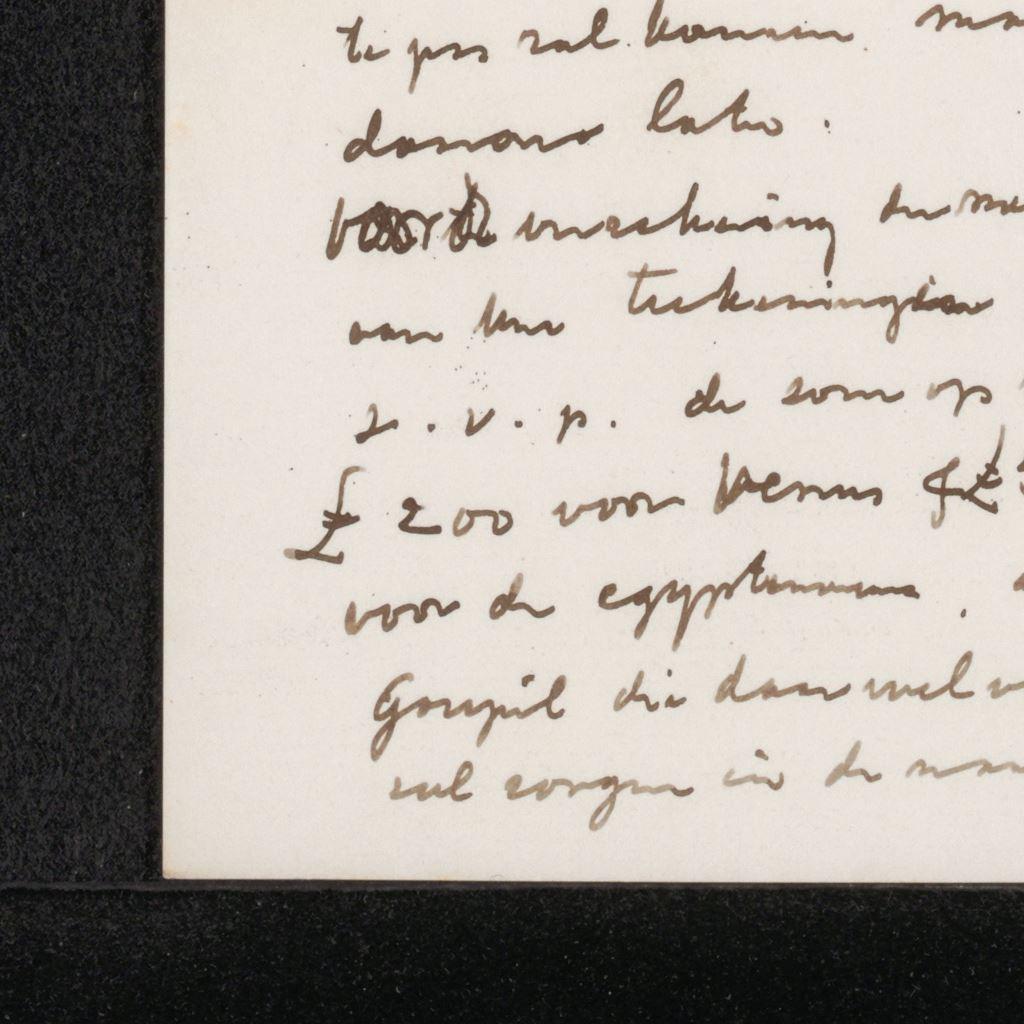 te pas zal komen. maa
daarover later.
voor de verzekering der
van hun teekeningen
s. v. p. de som op
£ 200 voor Venus & £
voor de egyptenaren.
Goupil die dan wel v
zal zorgen in de